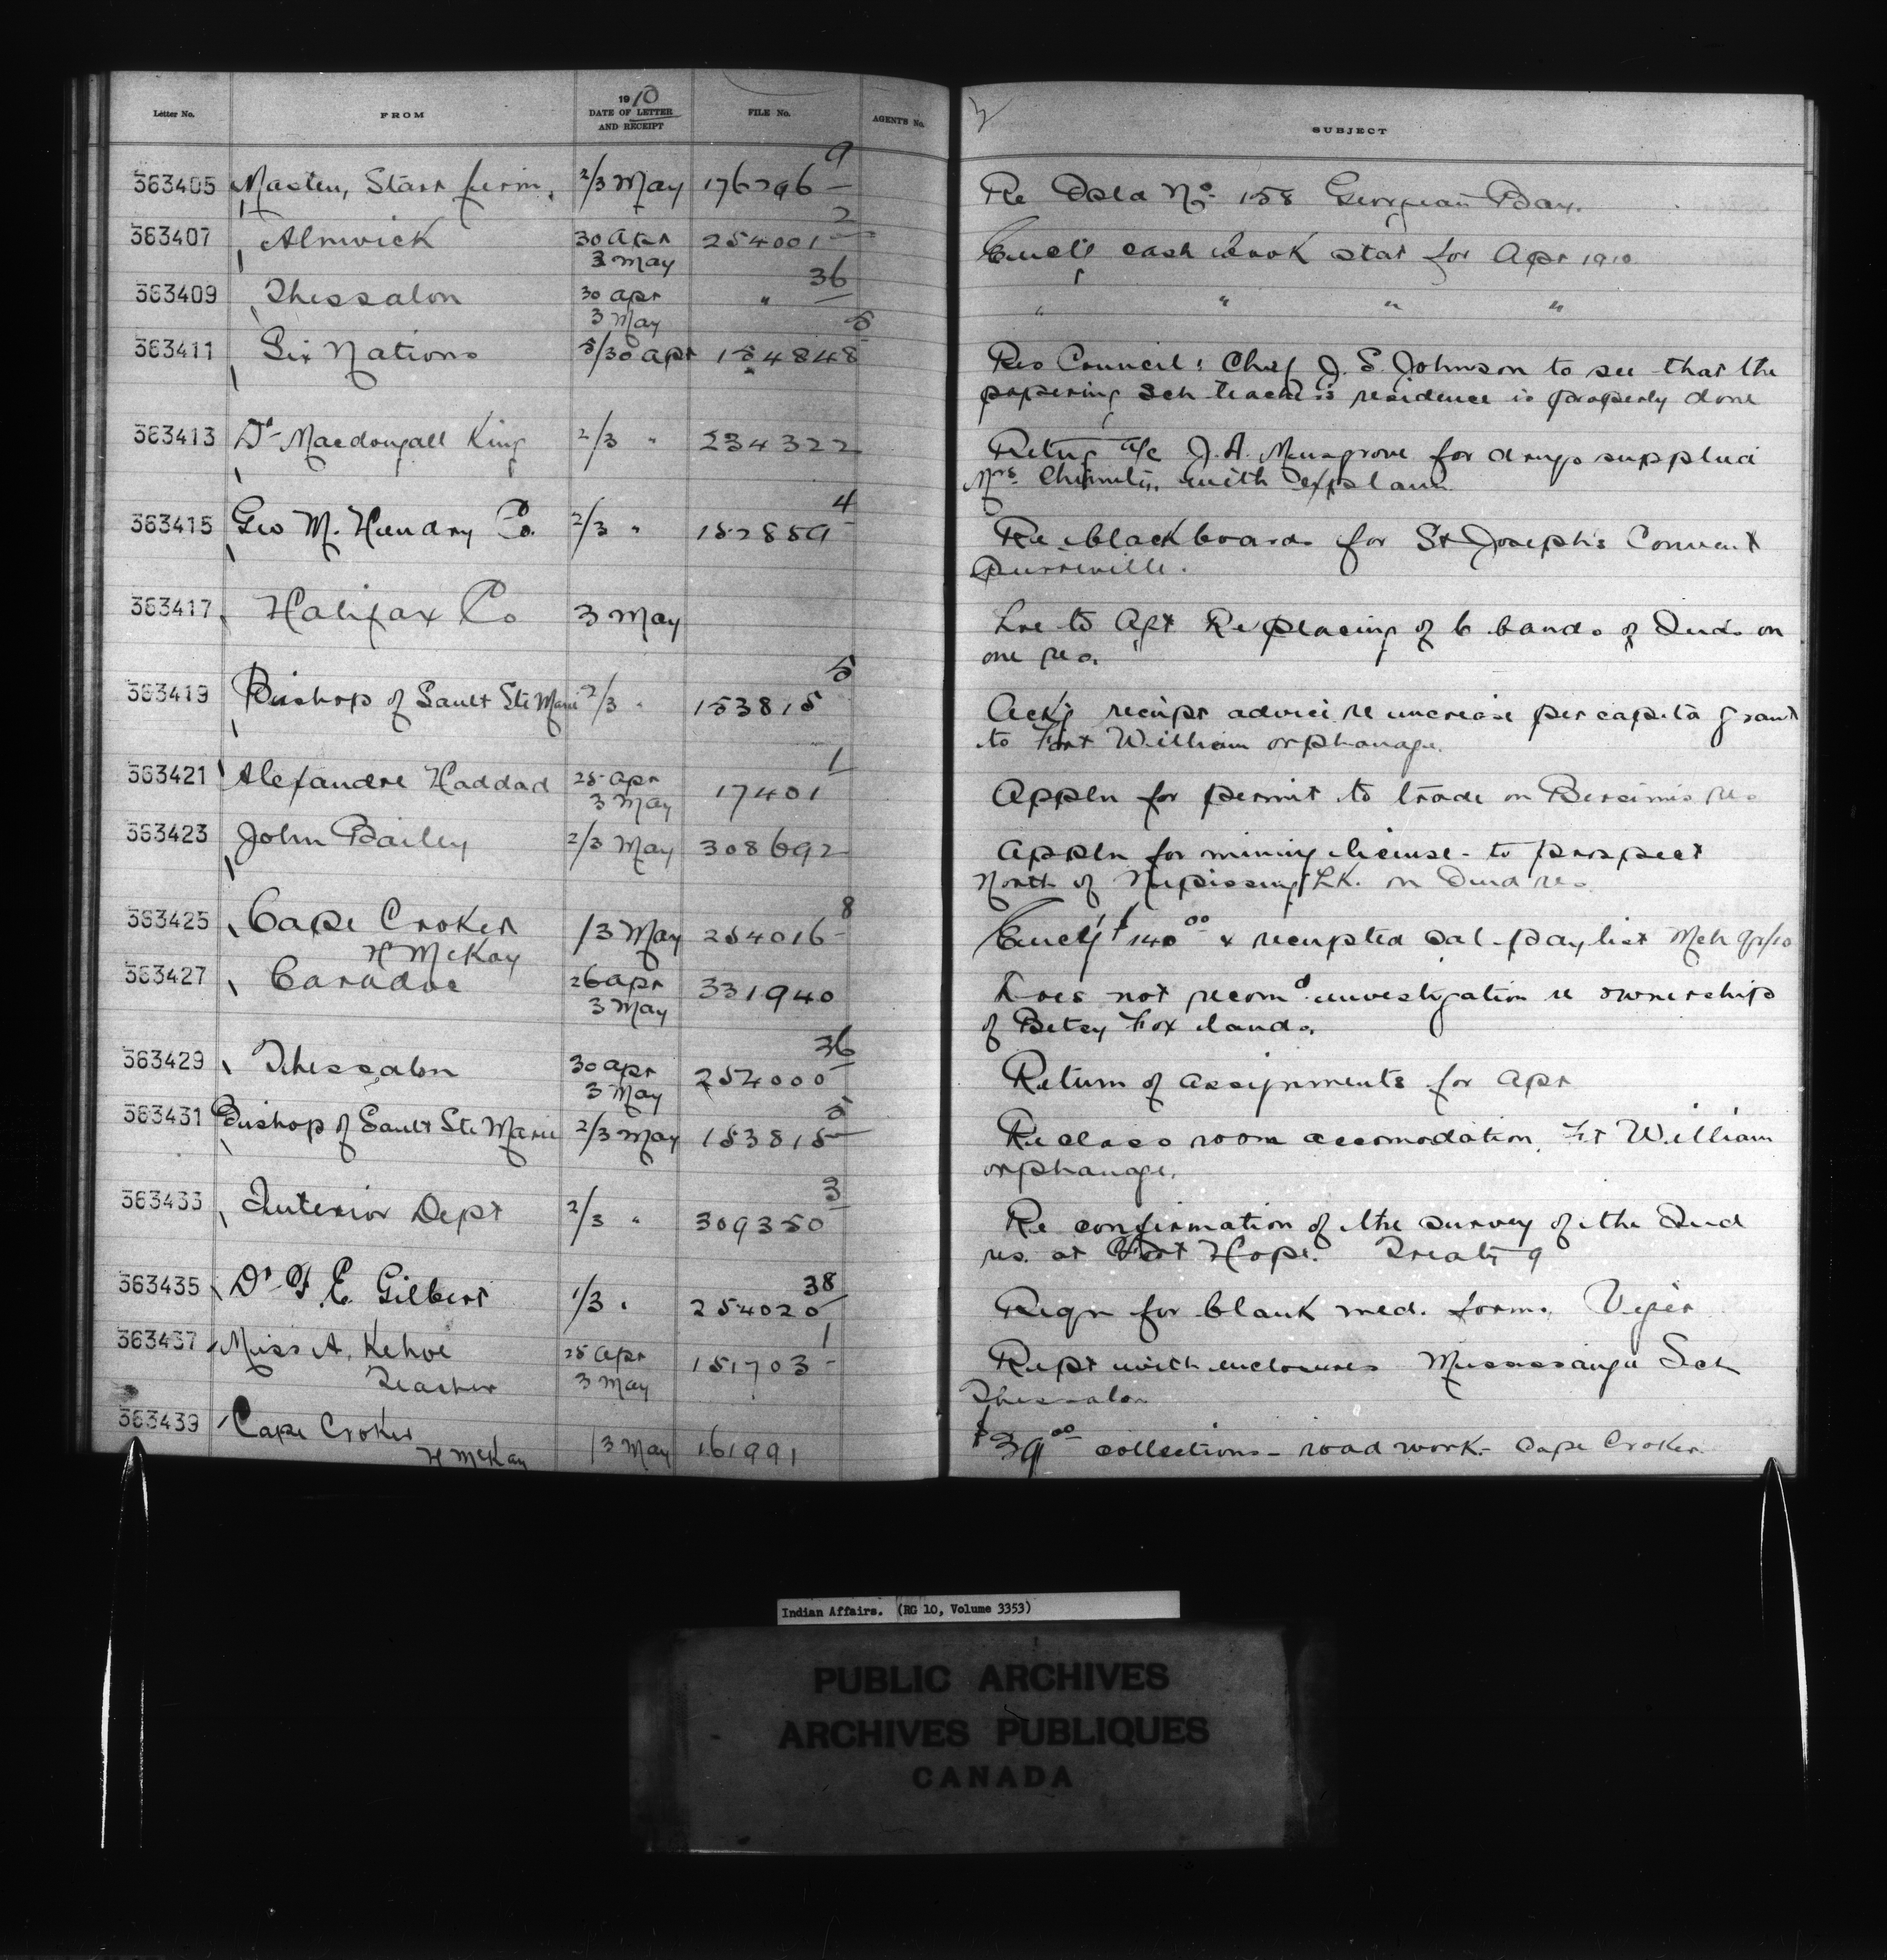 Letter No. FROM 1910 DATE OF LETTER AND RECEIPT FILE No. AGENTS No. SUBJECT
363405 Masten, Starr firm. 2/3 May 176796 9 Re Isld No. 158 Georgian Bay.
363407 Alnwick 30 Apr 3 May 254001 2 Encl'g cash book stat for Apr 1910
363409 Thessalon 30 Apr 3 May " 36 " " " "
363411 Six Nations 5/30 Apr 154848 5 Res Council: Chief J. S. Johnson to see that the
papering sch teacher's residence is properly done
363413 Dr Macdougall King 2/3 " 234322 Retng a/c J. A. Musgrove for drugs supplied
Mrs. with explann.
363415 Geo M. Hendry Co. 2/3 " 152859 4 Re blackboards for St Joseph's Convent
363417 Halifax Co 3 May to Agt Re placing of 6 bands of Inds on
one res.
363419 Bishop of Sault Ste Marie 2/3 " 153815 5 Ackg receipt advice re increase per capita grant
to Fort William orphanage.
363421 Alexandre Haddad 25 Apr 3 May 17401 1 Appln for permit to trade on Bersimis res
363423 John Bailey 2/3 May 308692 Appln for mining license - to prospect
North of Nipissing Lk. on Ind res.
363425 Cape Croker 1/3 May 254016 8 Encl'g $140.00 & receipted sal-paylist Mch 9r/10
H McKay
363427 Caradoc 26 Apr 3 May 331940 Does not recomd investigation re ownership
of Betsy Fox lands.
363429 Thessalon 30 Apr 3 May 254000 36 Return of assignments for Apr
363431 Bishop of Sault Ste Marie 2/3 May 153815 5 Re class room accomodation, Ft William
orphanage.
363433 Interior Dept 2/3 " 309350 3 Re confirmation of the survey of the Ind
res. at Fort Hope. Treaty 9
363435 Dr F. E. Gilbert 1/3 " 254020 38 Reqn for blank med. forms, Viger
363437 Miss A. Kehoe 25 Apr 3 May 151703 1 Rept with enclosures Mississauga Sch
Teacher Thessalon
363439 Cape Croker 1/3 May 161991 $39.00 collections - road work - Cape Croker.
H McKay
Indian Affairs. (RG 10, Volume 3353)
PUBLIC ARCHIVES
ARCHIVES PUBLIQUES
CANADA